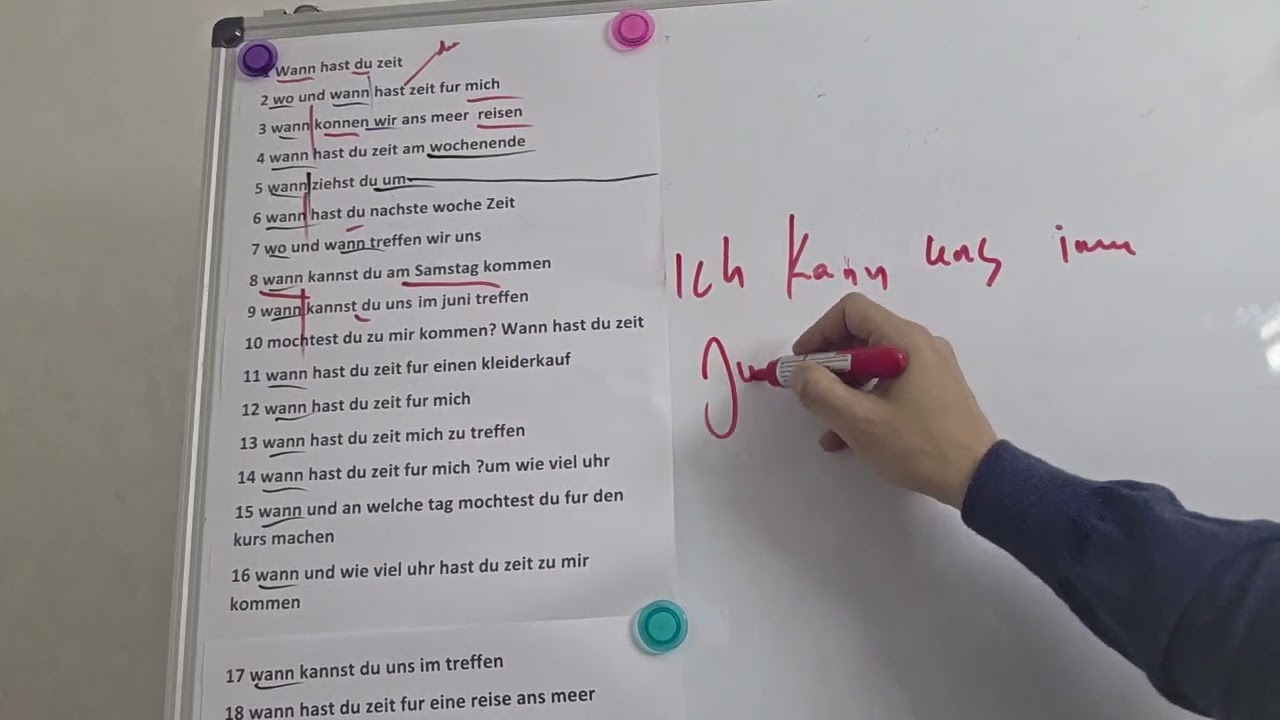 Wann hast du zeit
du
2 wo und wann hast zeit fur mich
3 wann konnen wir ans meer reisen
4 wann hast du zeit am wochenende
5 wann ziehst du um
6 wann hast du nachste woche Zeit
7 wo und wann treffen wir uns
8 wann kannst du am Samstag kommen
9 wann kannst du uns im juni treffen
10 mochtest du zu mir kommen? Wann hast du zeit
11 wann hast du zeit fur einen kleiderkauf
12 wann hast du zeit fur mich
13 wann hast du zeit mich zu treffen
14 wann hast du zeit fur mich ?um wie viel uhr
15 wann und an welche tag mochtest du fur den
kurs machen
16 wann und wie viel uhr hast du zeit zu mir
kommen
17 wann kannst du uns im treffen
18 wann hast du zeit fur eine reise ans meer
Ich kann uns im
Ju